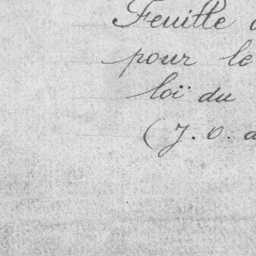 Feuille
pour le
loi du
(J. O.